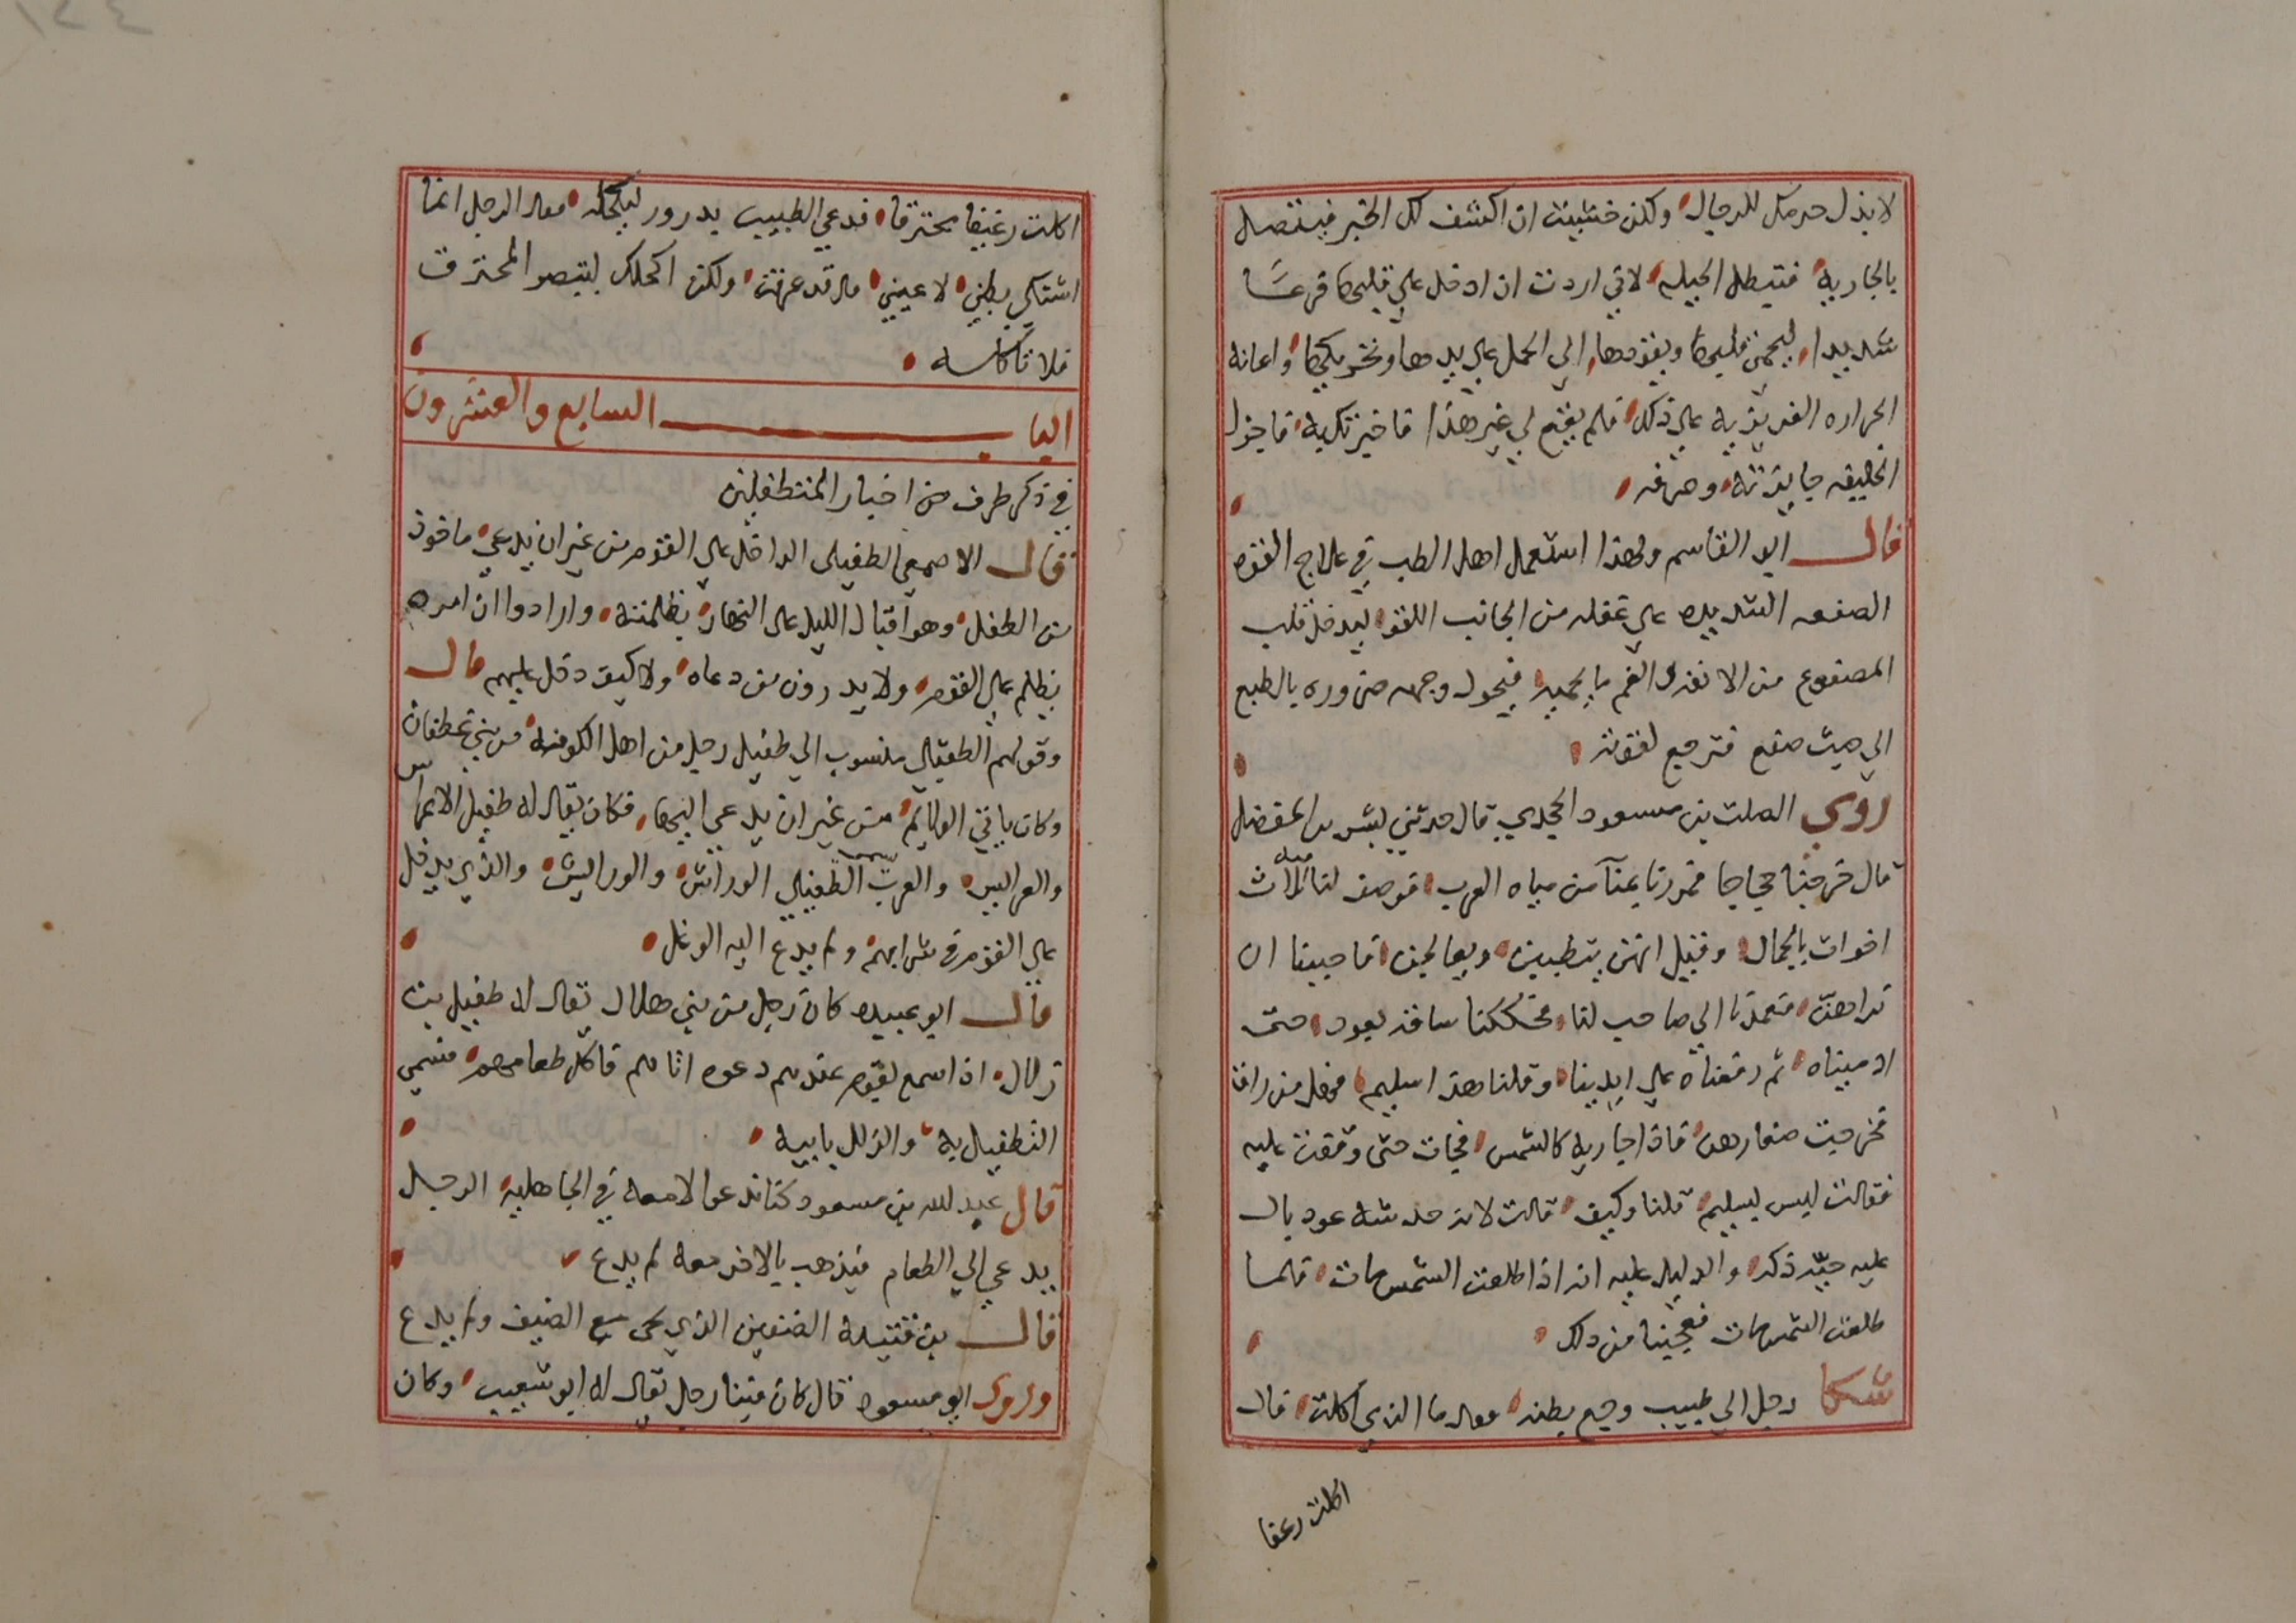 لا بذل حرمك للرجال ولكن خشيت ان اكشف لك الخبر فيتصل
بالجارية فتبطل الحيلة لاني اردت ان ادخل على قلبها فزعًا
شديدا ليحمى قلبها ويقودها الى الحمل على يديها وتحريكها واعانة
الحراره الغريزية على ذلك فلم يقع لي غير هذا فاخبرتك به فاجزل
الخليفه جايزته وصرفه
قال ابو القاسم ولهذا استعمل اهل الطب في علاج اللقوه
الصفعه الشديده على غفله من الجانب اللقو ليدخل قلب
المصفوع من الانفزاع الغم ما يحميه فيحول وجهه ضروره بالطبع
الى حيث صفع فترجع لقوته
روي الصلت بن مسعود الجحدري قال حدثني بشر بن المفضل
قال خرجنا حجاجا فمررنا بمآ من مياه العرب فوصف لنا فيه ثلاث
اخوات بالجمال وقيل انهن يتطببن ويعالجن فاحببنا ان
نراهن فعمدنا الى صاحب لنا فحككنا ساقه بعود حتى
ادميناه ثم رفعناه على ايدينا وقلنا هذا سليم فهل من راق
فخرجت صغارهن فاذا جارية كالشمس فجات حتى وقفت عليه
فقالت ليس بسليم قلنا وكيف قالت لانه خدشه عود بال
عليه حيّة ذكر والدليل عليه انه اذا طلعت الشمس مات فلما
طلعت الشمس مات فعجبنا من ذلك
شكا رجل الى طبيب وجع بطنه فقال ما الذي اكلت قال
اكلت رغيفا
اكلت رغيفا محترقا فدعى الطبيب بدرور ليكحله فقال الرجل انما
اشتكي بطني لا عيني قال قد عرفت ولكن اكحلك لتبصر المحترق
فلا تاكله
الباب السابع والعشرون
في ذكر طرف من اخبار المتطفلين
قال الاصمعي الطفيلي الداخل على القوم من غير ان يدعى ماخوذ
من الطفل وهو اقبال الليل على النهار بظلمته وارادوا ان امره
يظلم على القوم ولا يدرون من دعاه ولا كيف دخل عليهم قال
وقولهم الطفيلي منسوب الى طفيل رجل من اهل الكوفة من بني غطفان
وكان ياتي الولايم من غير ان يدعى اليها فكان يقال له طفيل الاعراس
والعرايس والعرب تسمى الطفيلي الوراش والورايش والذي يدخل
على القوم في شرابهم ولم يدع اليه الوغل
قال ابو عبيده كان رجل من بني هلال يقال له طفيل بن
زلال اذا سمع بقوم عندهم دعوه اتاهم فاكل طعامهم فسمي
التطفيل به والزلل بابيه
قال عبد الله بن مسعود كنا ندعو الامعة في الجاهلية الرجل
يدعى الى الطعام فيذهب بالاخر معه لم يدع
قال بن قتيبة الضيفن الذي يجي مع الضيف ولم يدع
وروى ابو مسعود قال كان فينا رجل يقال له ابو شعيب وكان